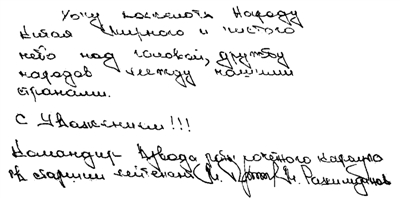 Хочу пожелать Народу
Китая мирного и чистого
неба над головой, дружбу
народов между нашими
странами.
С Уважением!!!
Командир Взвода роты почётного караула
старший лейтенант Рахимджанов